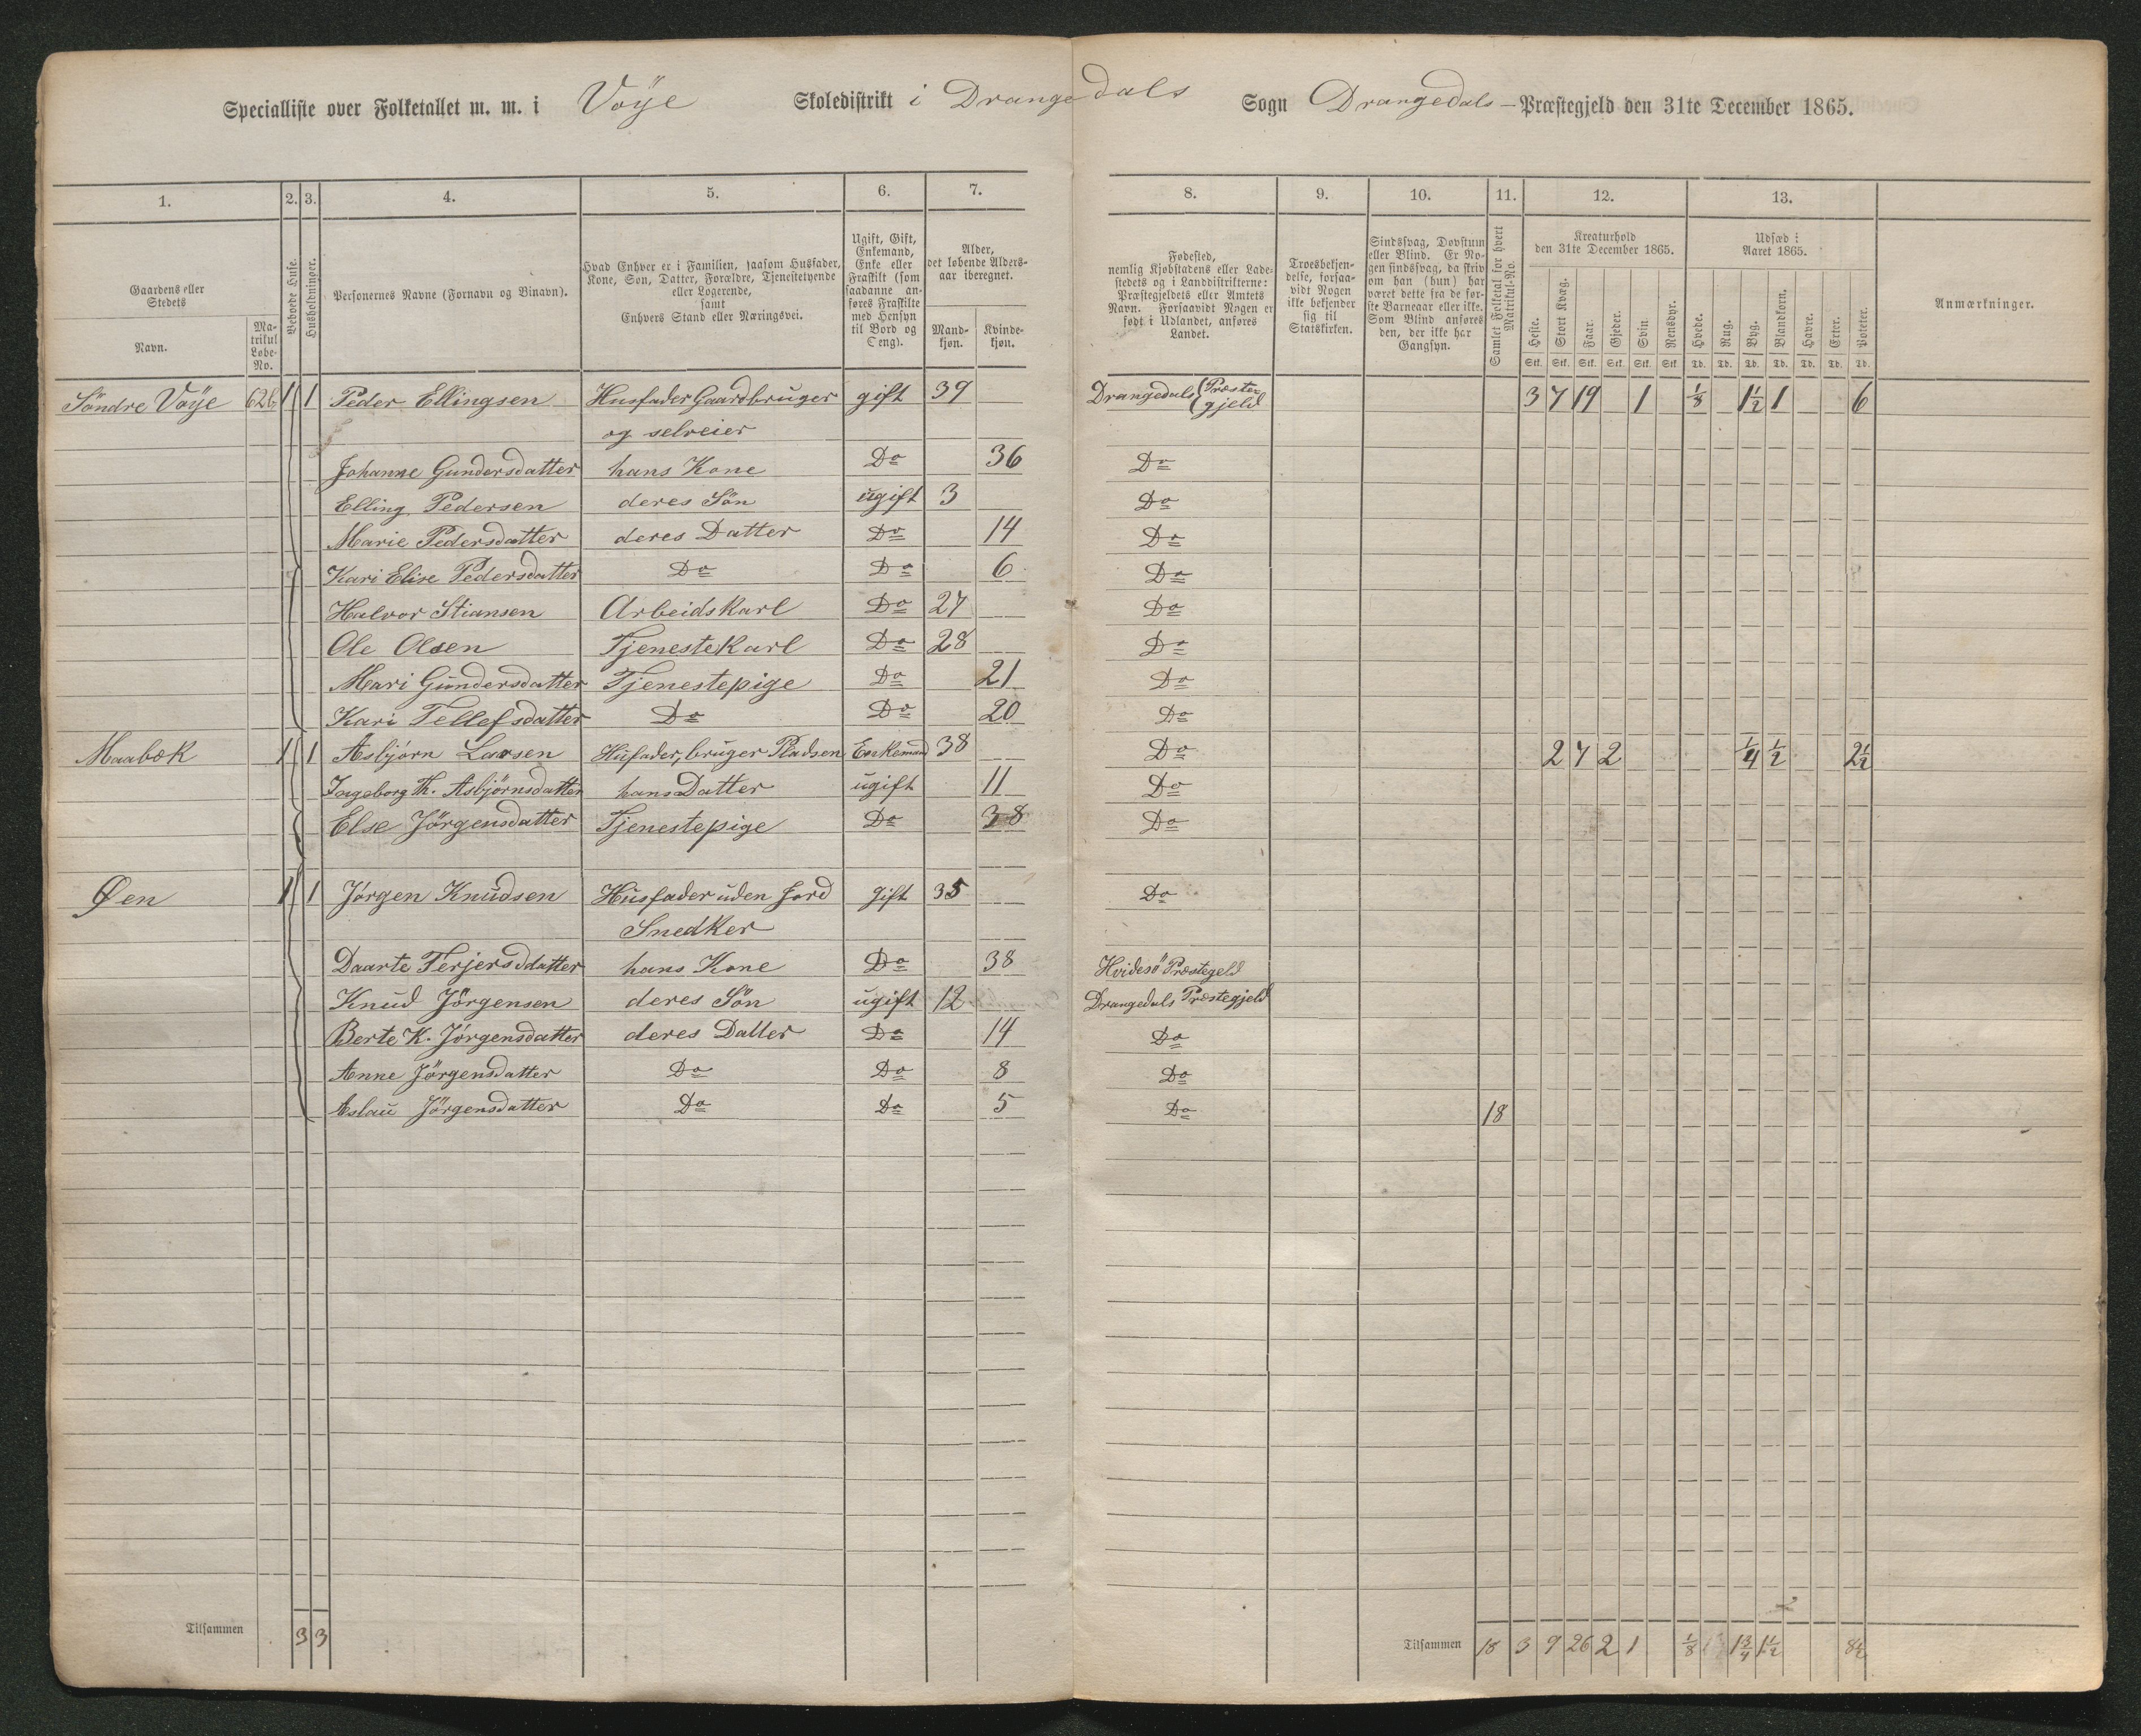 Specialliste over Folketallet m. m. i Vöÿe Skoledistrikt i Drangedals Sogn Drangedals - Præstegjeld den 31te December 1865.
1. 2. 3. 4. 5. 6. 7. 8. 9. 10. 11. 12. 13.
Gaardens eller Stedets Navn.
Matrikul Løbe-No.
Beboede Huse.
Husholdninger.
Personernes Navne (Fornavn og Binavn).
Hvad Enhver er i Familien, saasom Husfader, Kone, Søn, Datter, Forældre, Tjenestetyende eller Logerende, samt Enhvers Stand eller Næringsvei.
Ugift, Gift, Enkemand, Enke eller Fraskilt (som saadanne anføres Fraskilte med Hensyn til Bord og Seng).
Alder, det løbende Alders-aar iberegnet.
Mand-kjøn. Kvinde-kjøn.
Fødested, nemlig Kjøbstadens eller Ladestedets og i Landdistrikterne: Præstegjeldets eller Amtets Navn. Forsaavidt Nogen er født i Udlandet, anføres Landet.
Troesbekjendelse, forsaavidt Nogen ikke bekjender sig til Statskirken.
Sindssvag, Døvstum eller Blind. Er Nogen sindssvag, da skriv om han (hun) har været dette fra de første Barneaar eller ikke. Som Blind anføres den, der ikke har Gangsyn.
Samlet Folketal for hvert Matrikul-No.
Kreaturhold den 31te December 1865.
Heste. Stort Kvæg. Faar. Gjeder. Svin. Rensdyr.
Stk. Stk. Stk. Stk. Stk. Stk
Udsæd i Aaret 1865.
Hvede. Rug. Byg. Blandkorn. Havre. Erter. Poteter.
Td. Td. Td. Td. Td. Td. Td.
Anmærkninger.
Söndre Vöÿe 62b 1 1 Peder Ellingsen Husfader Gaardbruger gift 39 Drangedals Præstegjeld 3 7 19 1 1/8 1 1/2 1 6
og selveier
Johanne Gundersdatter hans Kone Do 36 Do
Elling Pedersen deres Sön ugift 3 Do
Marie Pedersdatter deres Datter Do 14 Do
Kari Elise Pedersdatter Do Do 6 Do
Halvor Stiansen Arbeidskarl Do 27 Do
Ole Olsen Tjenestekarl Do 28 Do
Mari Gundersdatter Tjenestepige Do 21 Do
Kari Tellefsdatter Do Do 20 Do
Maabæk 1 1 Asbjörn Larsen Husfader, bruger Pladsen Enkemand 38 Do 2 7 2 1/4 1/2 2 1/2
Ingeborg Th. Asbjörnsdatter hans Datter ugift 11 Do
Else Jörgensdatter Tjenestepige Do 38 Do
Øen 1 1 Jörgen Knudsen Husfader uden Jord gift 35 Do
Snedker
Daarte Terjersddatter hans Kone Do 38 Hvidesö Præstegeld
Knud Jörgensen deres Sön ugift 12 Drangedals Præstegjeld
Berte K. Jörgensdatter deres Datter Do 14 Do
Anne Jörgensdatter Do Do 8 Do
Aslau Jörgensdatter Do Do 5 Do 18
Tilsammen 3 3 Tilsammen 18 3 9 26 2 1 1/8 1 3/4 1 1/2 8 1/2